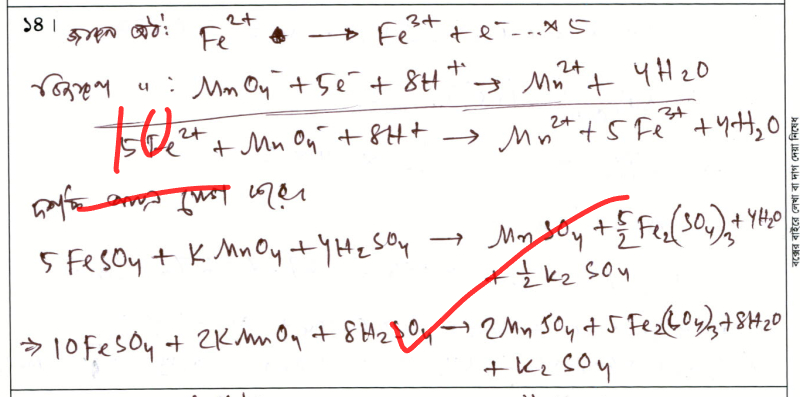 ১৪। জারণ অর্ধ: Fe²⁺ → Fe³⁺ + e⁻ ... × 5
বিজারণ ": MnO₄⁻ + 5e⁻ + 8H⁺ → Mn²⁺ + 4H₂O
10
5Fe²⁺ + MnO₄⁻ + 8H+ → Mn²⁺ + 5Fe³⁺ + 4H₂O
দর্শক আয়ন যোগ
5FeSO₄ + KMnO₄ + 4H₂SO₄ → MnSO₄ + 5/2 Fe₂(SO₄)₃ + 4H₂O
+ 1/2 K₂SO₄
⇒ 10FeSO₄ + 2KMnO₄ + 8H₂SO₄ → 2MnSO₄ + 5Fe₂(SO₄)₃ + 8H₂O
+ K₂SO₄
বক্সের বাইরে লেখা বা দাগ দেয়া নিষেধ